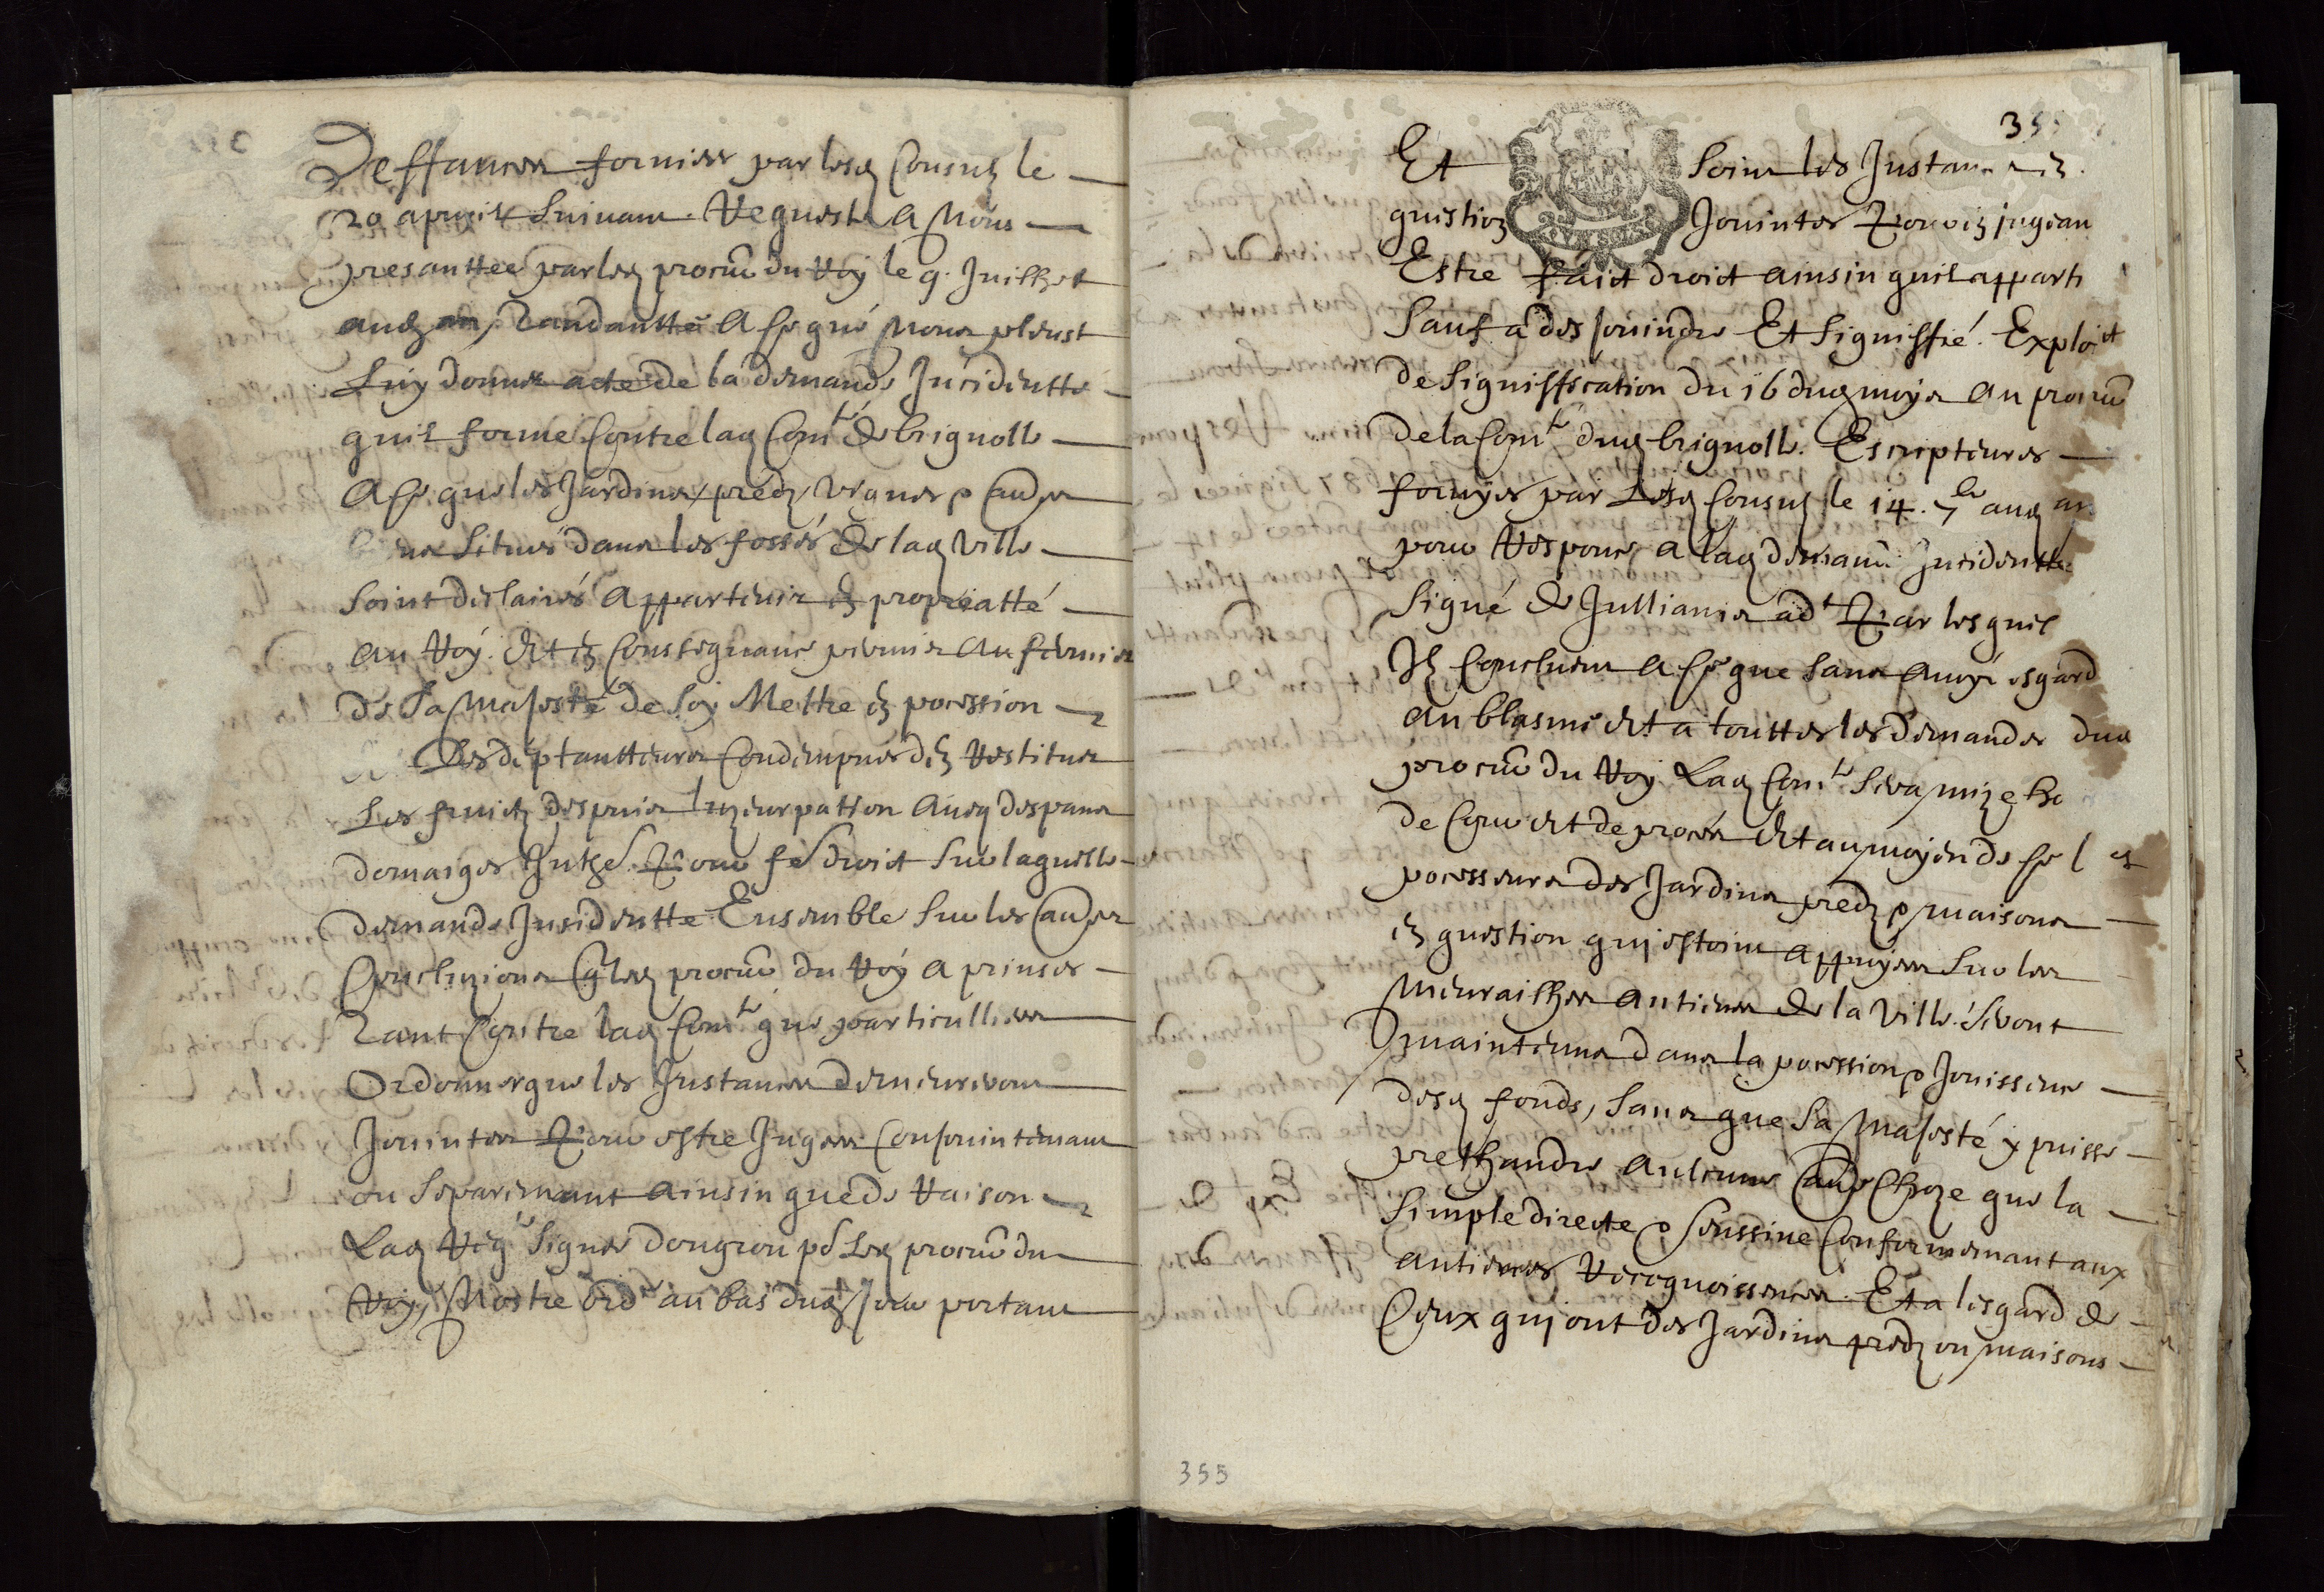 Deffances fornies par lesd Consuls le
20 apvril suivant Requeste a Nous
presanttée par led procur du Roy le 9 Juilhet
aud an, Tandantte a ce que Nous pleust
Luy donner acte de la demande Incidentte
quil forme Contre lad Comté de brignolle
a ce que les Jardins, preds, vignes & aud
situés dans les fossés de lad ville
soint desclairés appartenir en propriatté
au Roy. Et en Consequance permis au fermier
de Sa Majesté de soy Mettre en pocession
Les deptantteurs Condempnes den Restituer
Les fruictz despuis luzeurpattion aveq despans
domaiges Inthes. Pour se droit sur laquelle
demande Insidentte Ensemble sur les au
Concluzions que led procur du Roy a prinses
Tant Contre lad Comté que particulliers
Ordonner que les Instances demeureront
Jouintes Pour estre Jugees Conjouintemant
ou separemant ainsin que de Raison
Lad Reqte signée dougron pd Led procur du
Roy, Nostre ordce au bas dud Jour portant
355
Et soint les Instan en
question Jouintes Pour en jugean
Estre faict droict ainsin quil apparti
Sauf a desjouindre Et signiffié. Exploict
de signiffication du 16 dud moys au procur
de la Comté dud brignolle. Escripteures
fornyes par Lesd Consuls le 14. 7bre aud an
pour Response a lad demande Incidentte
signé de Jullianis adt Par lesquel
Ils Concluent a ce que sans avoyr esgard
au blasme et a touttes les demandes dud
procur du Roy Lad Comté sera mize ho
de Cour et de proces et au moyen de ce l es
pocesseurs des Jardins preds & maisons
en question qui estoint appuyees sur les
Meurailhes antienes de la ville. seront
maintenus dans la pocession & Jouissence
desd fonds, sans que sa Majesté y puisse
prethandre aulcune autre Choze que la
simple directe & Censsive Conformemant aux
antienes Recognoissences. Et a lesgard de
Ceux qui ont des Jardins preds ou maisons
355